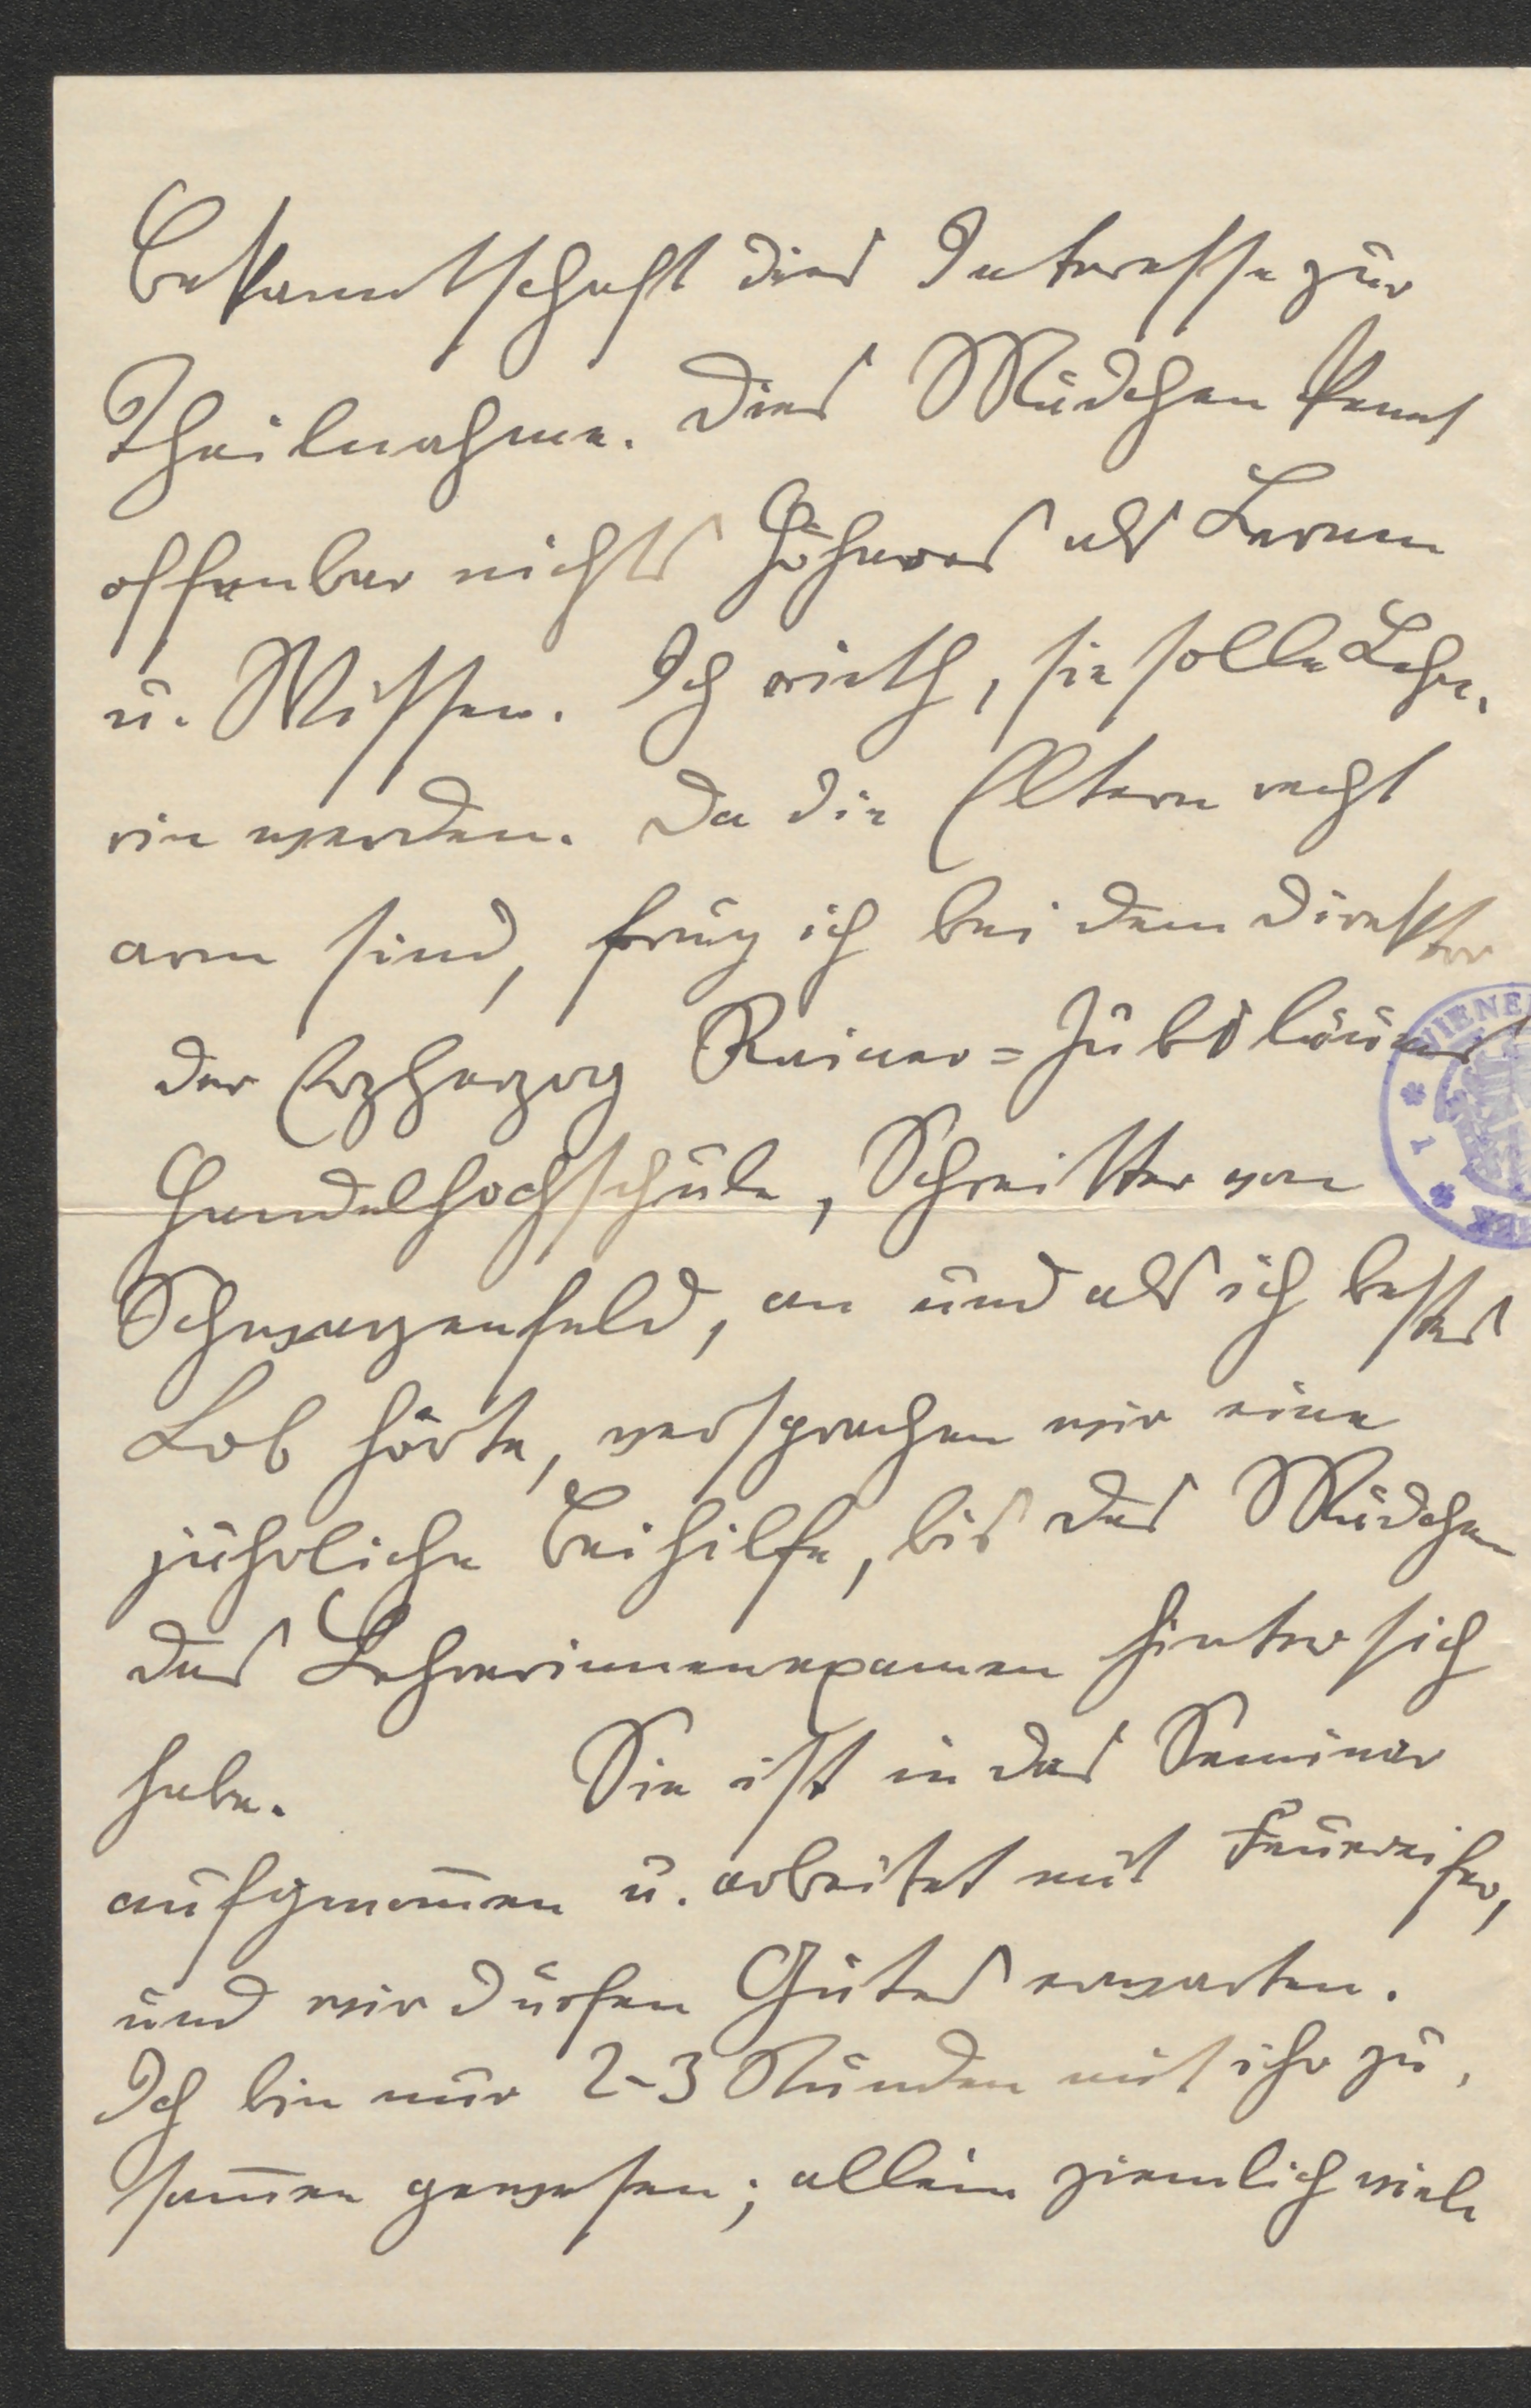 Bekanntschaft dies Interesse zur
Theilnahme. Dies Mädchen kennt
offenbar nichts Höheres als Lernen
u. Wissen. Ich rieth, sie solle Lehre,
rin werden. Da die Eltern recht
arm sind, frug ich bei dem Direktor
der Erzherzog Rainer=Jubiläums
Handelhochschule, Schreitter von
Schwarzenfeld, an und als ich bestes
Lob hörte, versprachen wir eine
jährliche Beihilfe, bis das Mädchen
das Lehrerinnenexamen hinter sich
habe. Sie ist in das Seminar
aufgenom̅en u. arbeitet mit Feuereifer,
und wir dürfen Gutes erwarten.
Ich bin nur 2-3 Stunden mit ihr zu,
sam̅en gewesen; allein ziemlich viele